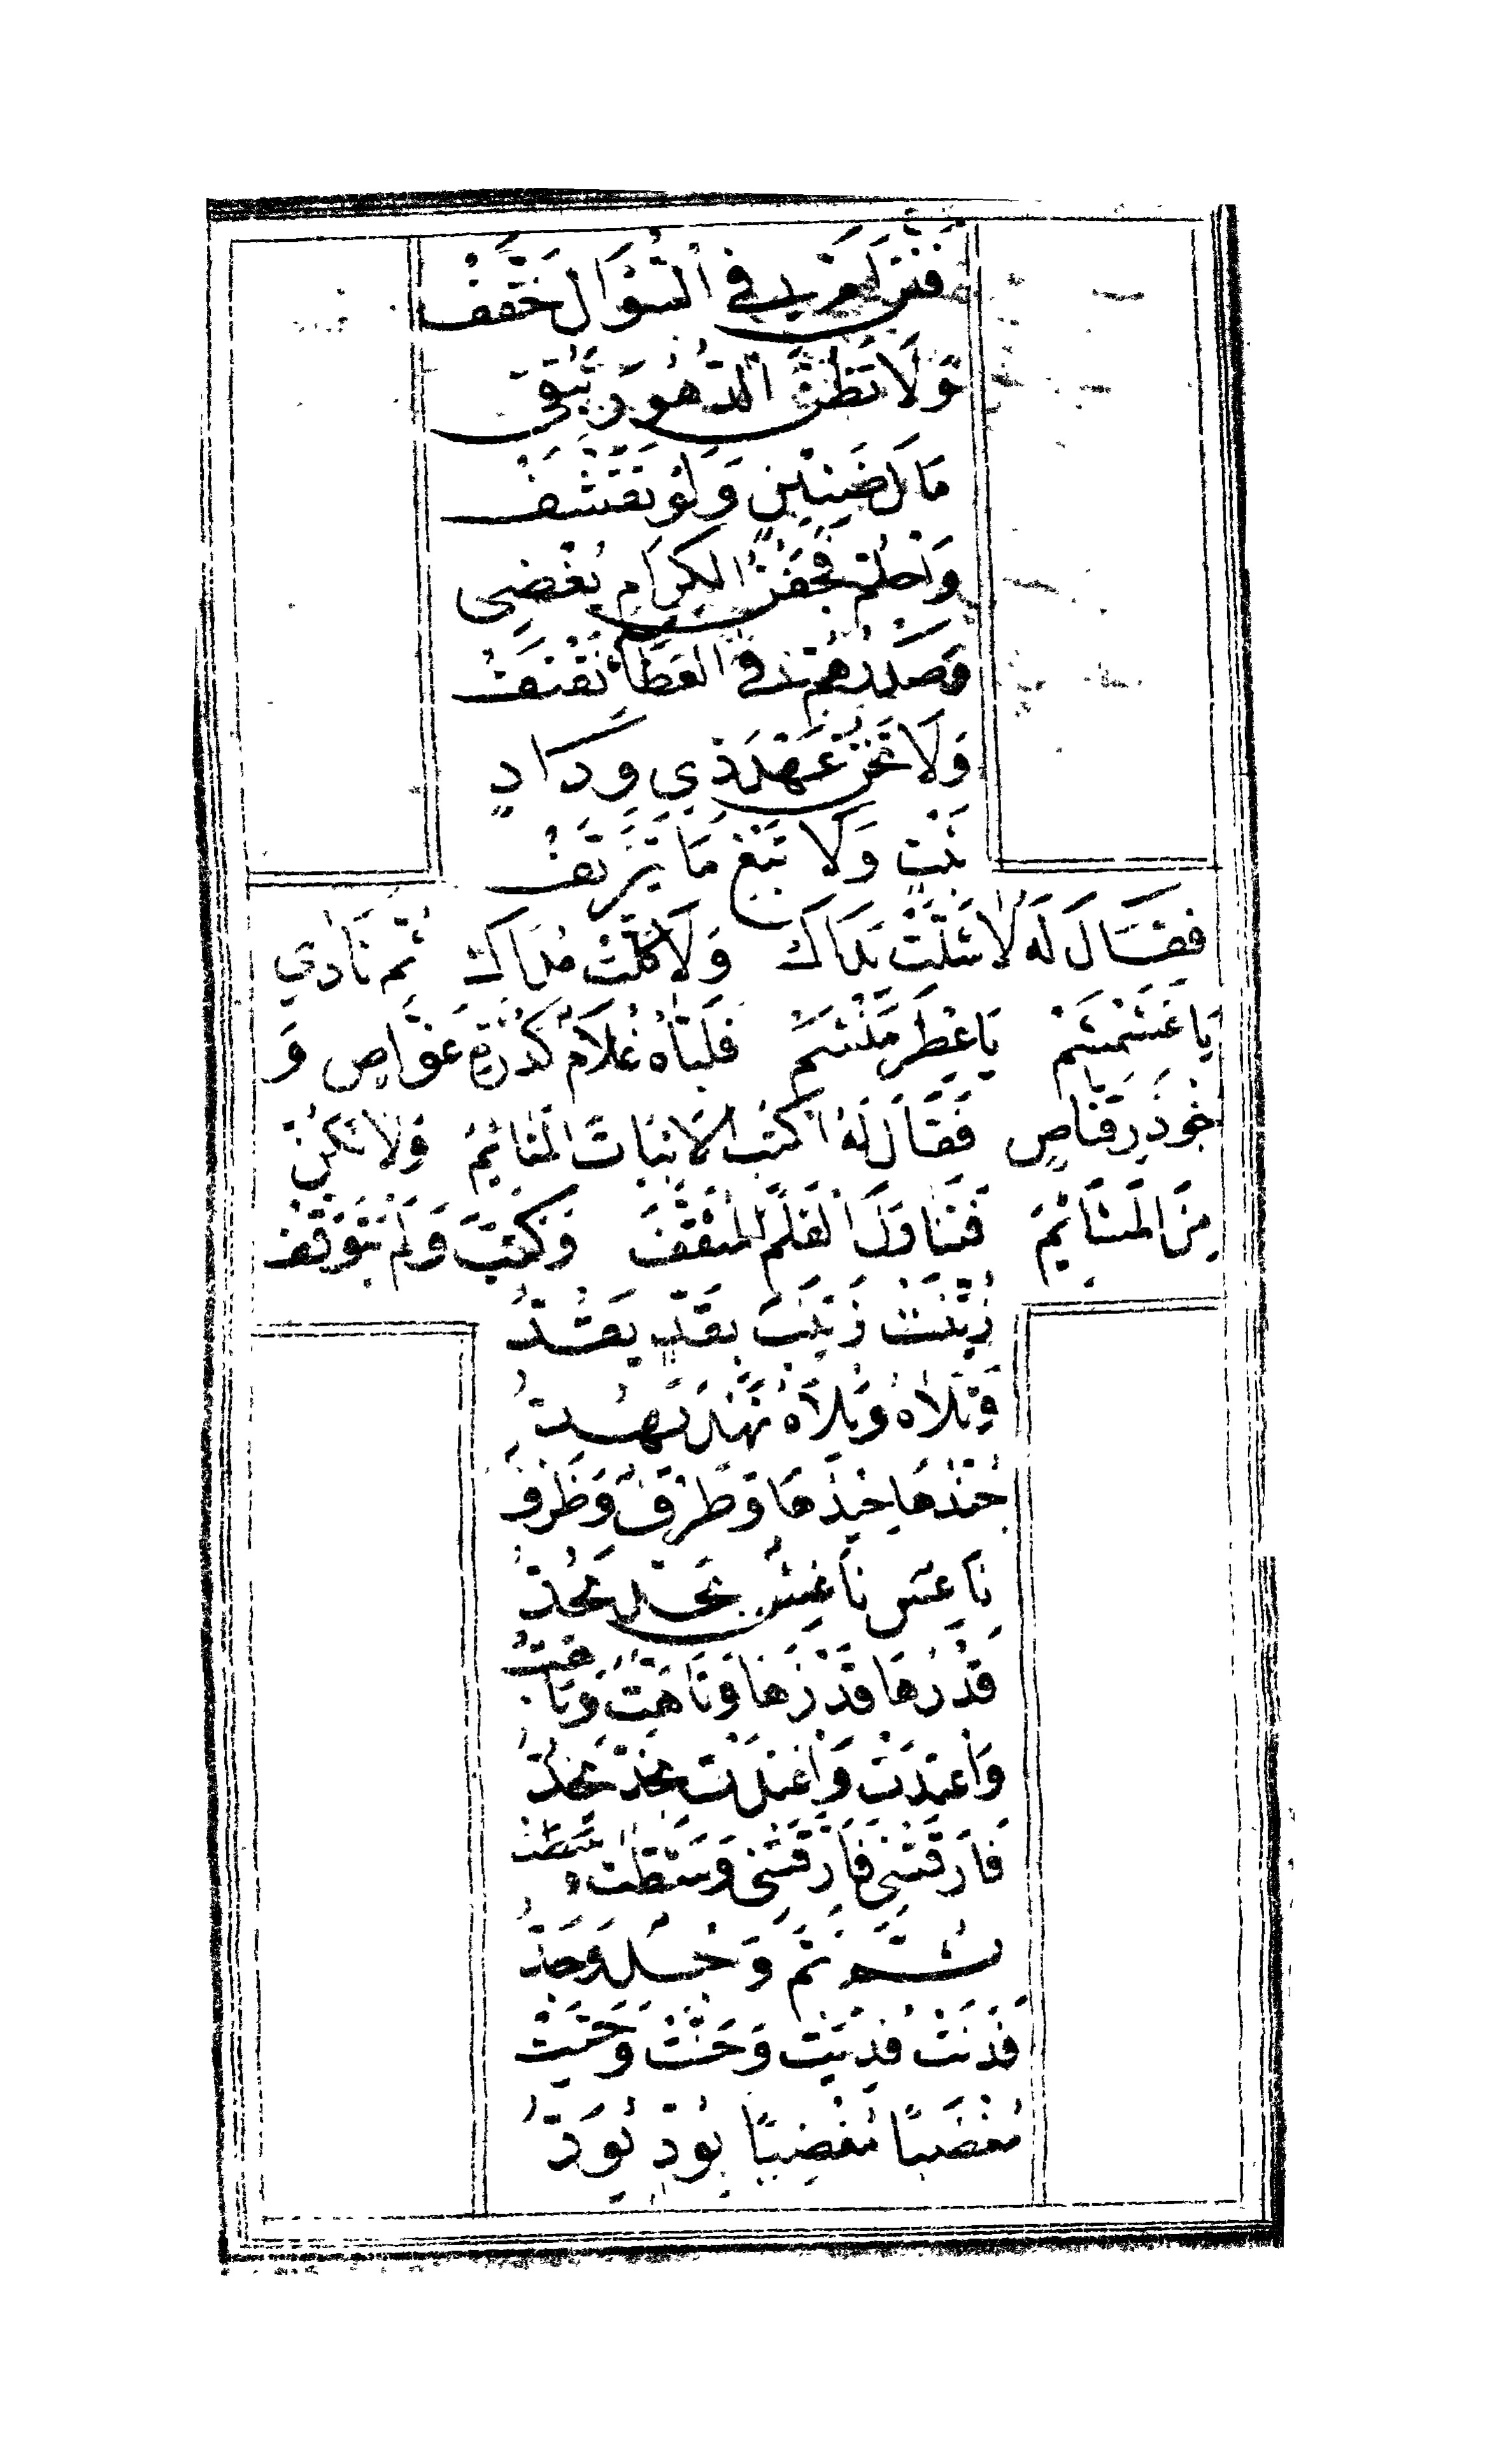 فَنَنٍ يُرِيدُ فِي السُّؤَالِ خَفَّفْ
وَلَا تَظُنَّ الدُّهُورَ تُبْقِي
مَالَ ضَنِينٍ وَلَوْ تَقَشَّفْ
وَاحْلُمْ فَجَفْنُ الْكِرَامِ يُغْضِي
وَصَدْرُهُمْ فِي الْعَطَاءِ نَفْنَفْ
وَلَا تَخُنْ عَهْدَ ذِي وِدَادٍ
ثَبْتٍ وَلَا تَبْغِ مَا تَزَيَّفْ
فَقَالَ لَهُ لَا شَلَّتْ يَدَاكَ وَلَا كَلَّتْ مُدَاكَ ثُمَّ نَادَى
يَا غَشَمْشَمْ يَا عِطْرَ مَنْشَمْ فَلَبَّاهُ غُلَامٌ كَدُرَّةِ غَوَّاصٍ وَ
جُؤْذَرِ قَنَّاصٍ فَقَالَ لَهُ اكْتُبِ الْأَبْيَاتَ الْمَتَائِيمَ وَلَا تَكُنْ
مِنَ الْمَشَائِيمِ فَتَنَاوَلَ الْقَلَمَ الْمُثَقَّفَ وَكَتَبَ وَلَمْ يَتَوَقَّفْ
زُيِّنَتْ زَيْنَبٌ بِقَدٍّ يَقُدُّ
وَتَلَاهُ وَيْلَاهُ نَهْدٌ يَهُدُّ
جُنْدُهَا جِيدُهَا وَظَرْفٌ وَطَرْفٌ
نَاعِسٌ نَاعِشٌ بِحَدٍّ يَحُدُّ
قَدْرُهَا قَدْ زَهَا وَتَاهَتْ وَبَاهَتْ
وَاعْتَدَتْ وَاغْتَدَتْ بِخَدٍّ يَخُدُّ
فَارَقَتْنِي فَأَرَّقَتْنِي وَشَطَّتْ وَسَطَتْ
ثُمَّ نَمَّ وَجْدٌ وَجَدُّ
فَدَنَتْ فُدِيَتْ وَحَنَّتْ وَحَيَّتْ
مُغْضَبًا مُغْضِيًا يَوَدُّ يُوَدُّ